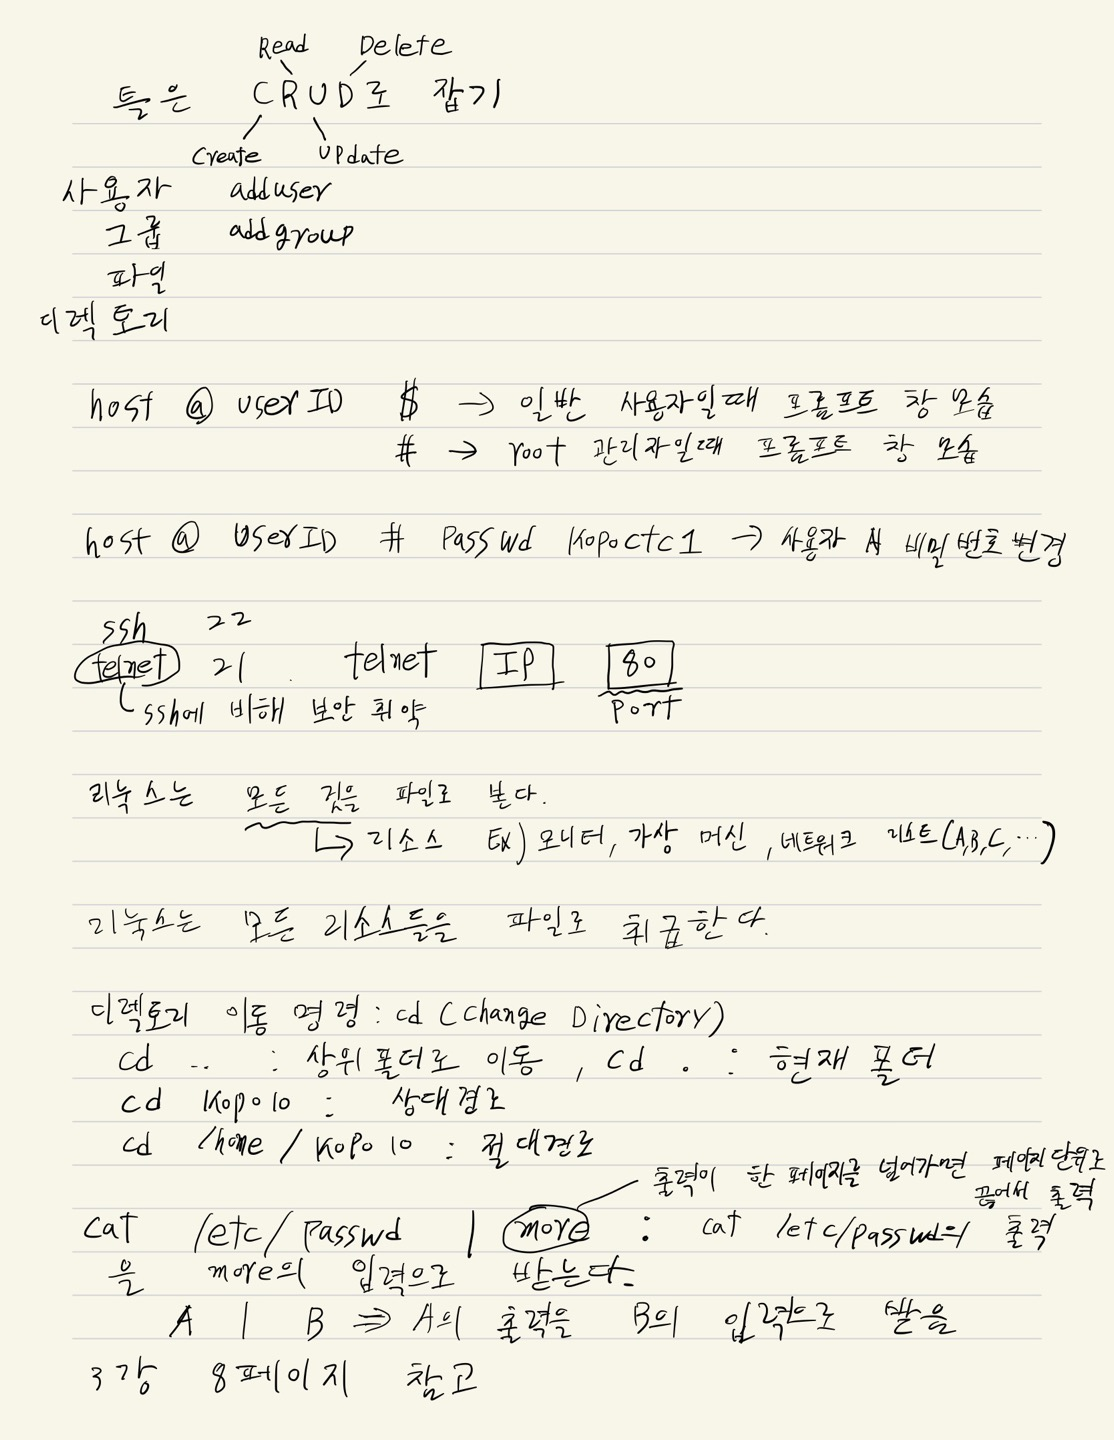 Read Delete
틀은 CRUD로 잡기
Create UPdate
사용자 adduser
그룹 addgroup
파일
디렉토리
host @ userID $ → 일반 사용자일때 프롬프트 창 모습
# → root 관리자일때 프롬프트 창 모습
host @ UserID # Passwd Kopoctc1 → 사용자 비밀번호변경
ssh 22
telnet 21 telnet IP 80
ssh에 비해 보안 취약 Port
리눅스는 모든 것을 파일로 본다.
↳ 리소스 Ex) 모니터, 가상 머신, 네트워크 리소트(A,B,C,…)
리눅스는 모든 리소스들을 파일로 취급한다.
디렉토리 이동 명령 : cd (Change Directory)
cd .. : 상위 폴더로 이동, cd . : 현재 폴더
cd Kopo10 : 상대경로
cd /home/Kopo10 : 절대경로
출력이 한 페이지를 넘어가면 페이지 단위로
끊어서 출력
cat /etc/passwd | more : cat /etc/passwd의 출력
을 more의 입력으로 받는다.
A | B ⇒ A의 출력을 B의 입력으로 받음
3강 8페이지 참고